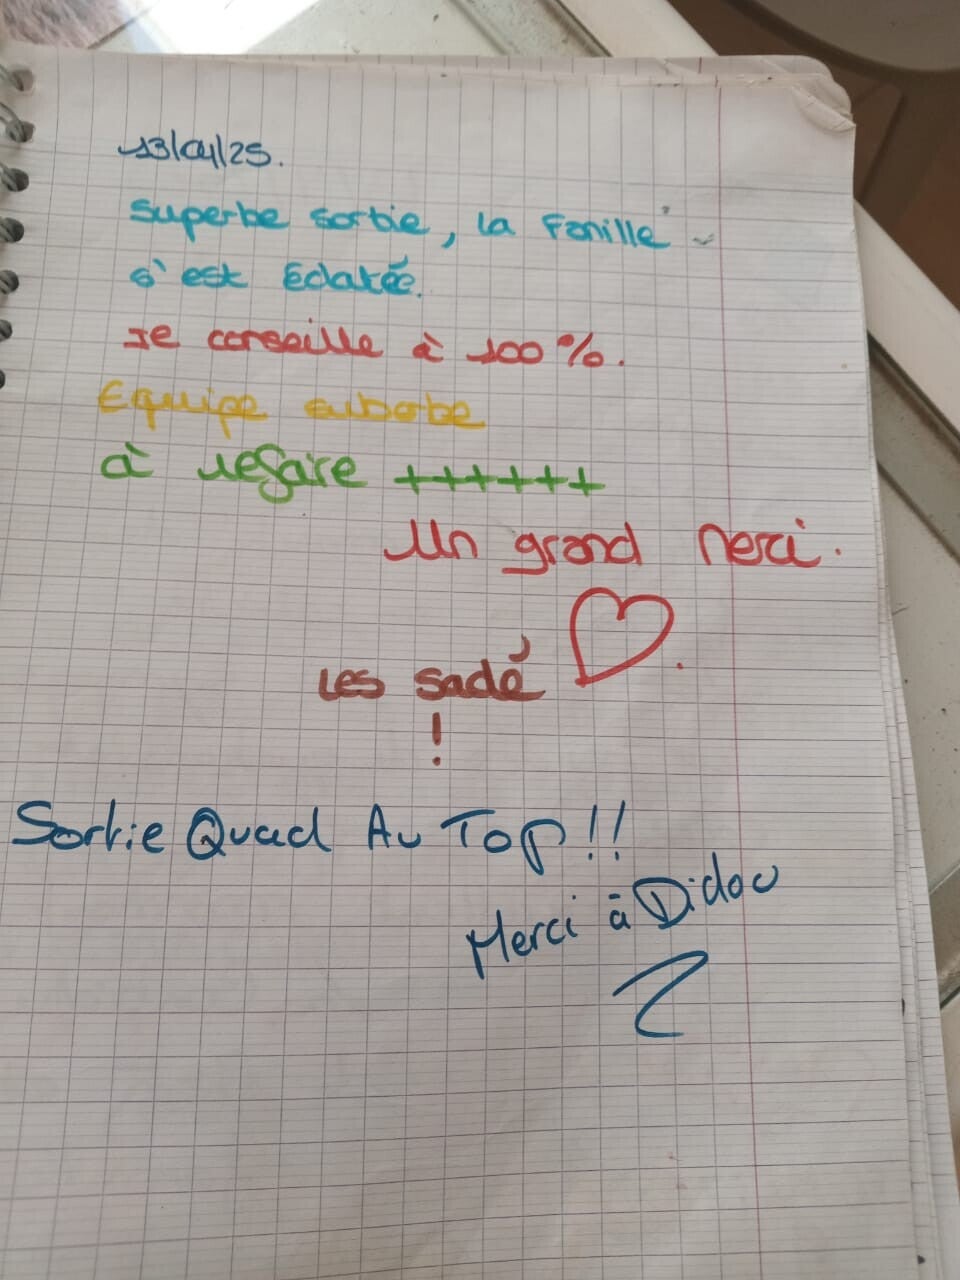 13/04/25.
Superbe sortie, la famille
s'est éclatée.
Je conseille à 100%.
Equipe suberbe
à refaire ++++++
Un grand merci.
Les sadé
!
Sortie Quad Au Top!!
Merci à Didou